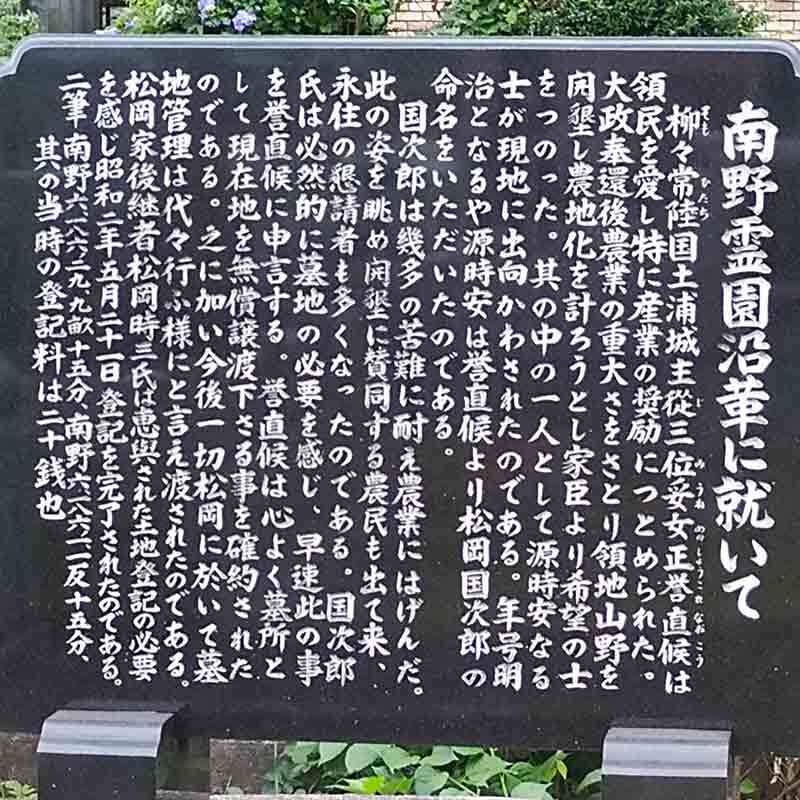 南野霊園沿革に就いて
柳々常陸国土浦城主従三位妥女正誉直候は
領民を愛し特に産業の奨励につとめられた。
大政奉還後農業の重大さをさとり領地山野を
開墾し農地化を計ろうとし家臣より希望の士
をつのった。其の中の一人として源時安なる
士が現地に出向かわされたのである。年号明
治となるや源時安は誉直候より松岡国次郎の
命名をいただいたのである。
国次郎は幾多の苦難に耐え農業にはげんだ。
此の姿を眺め開墾に賛同する農民も出て来、
永住の懇請者も多くなったのである。国次郎
氏は必然的に墓地の必要を感じ、早速此の事
を誉直候に申言する。誉直候は心よく墓所と
して現在地を無償譲渡下さる事を確約された
のである。之に加い今後一切松岡に於いて墓
地管理は代々行ふ様にと言え渡されたのである。
松岡家後継者松岡時三氏は恵与された土地登記の必要
を感じ昭和二年五月二十一日登記を完了されたのである。
二筆南野六、一八六、二九九畝十五分、南野六、一八六、二一反十五分、
其の当時の登記料は二十銭也